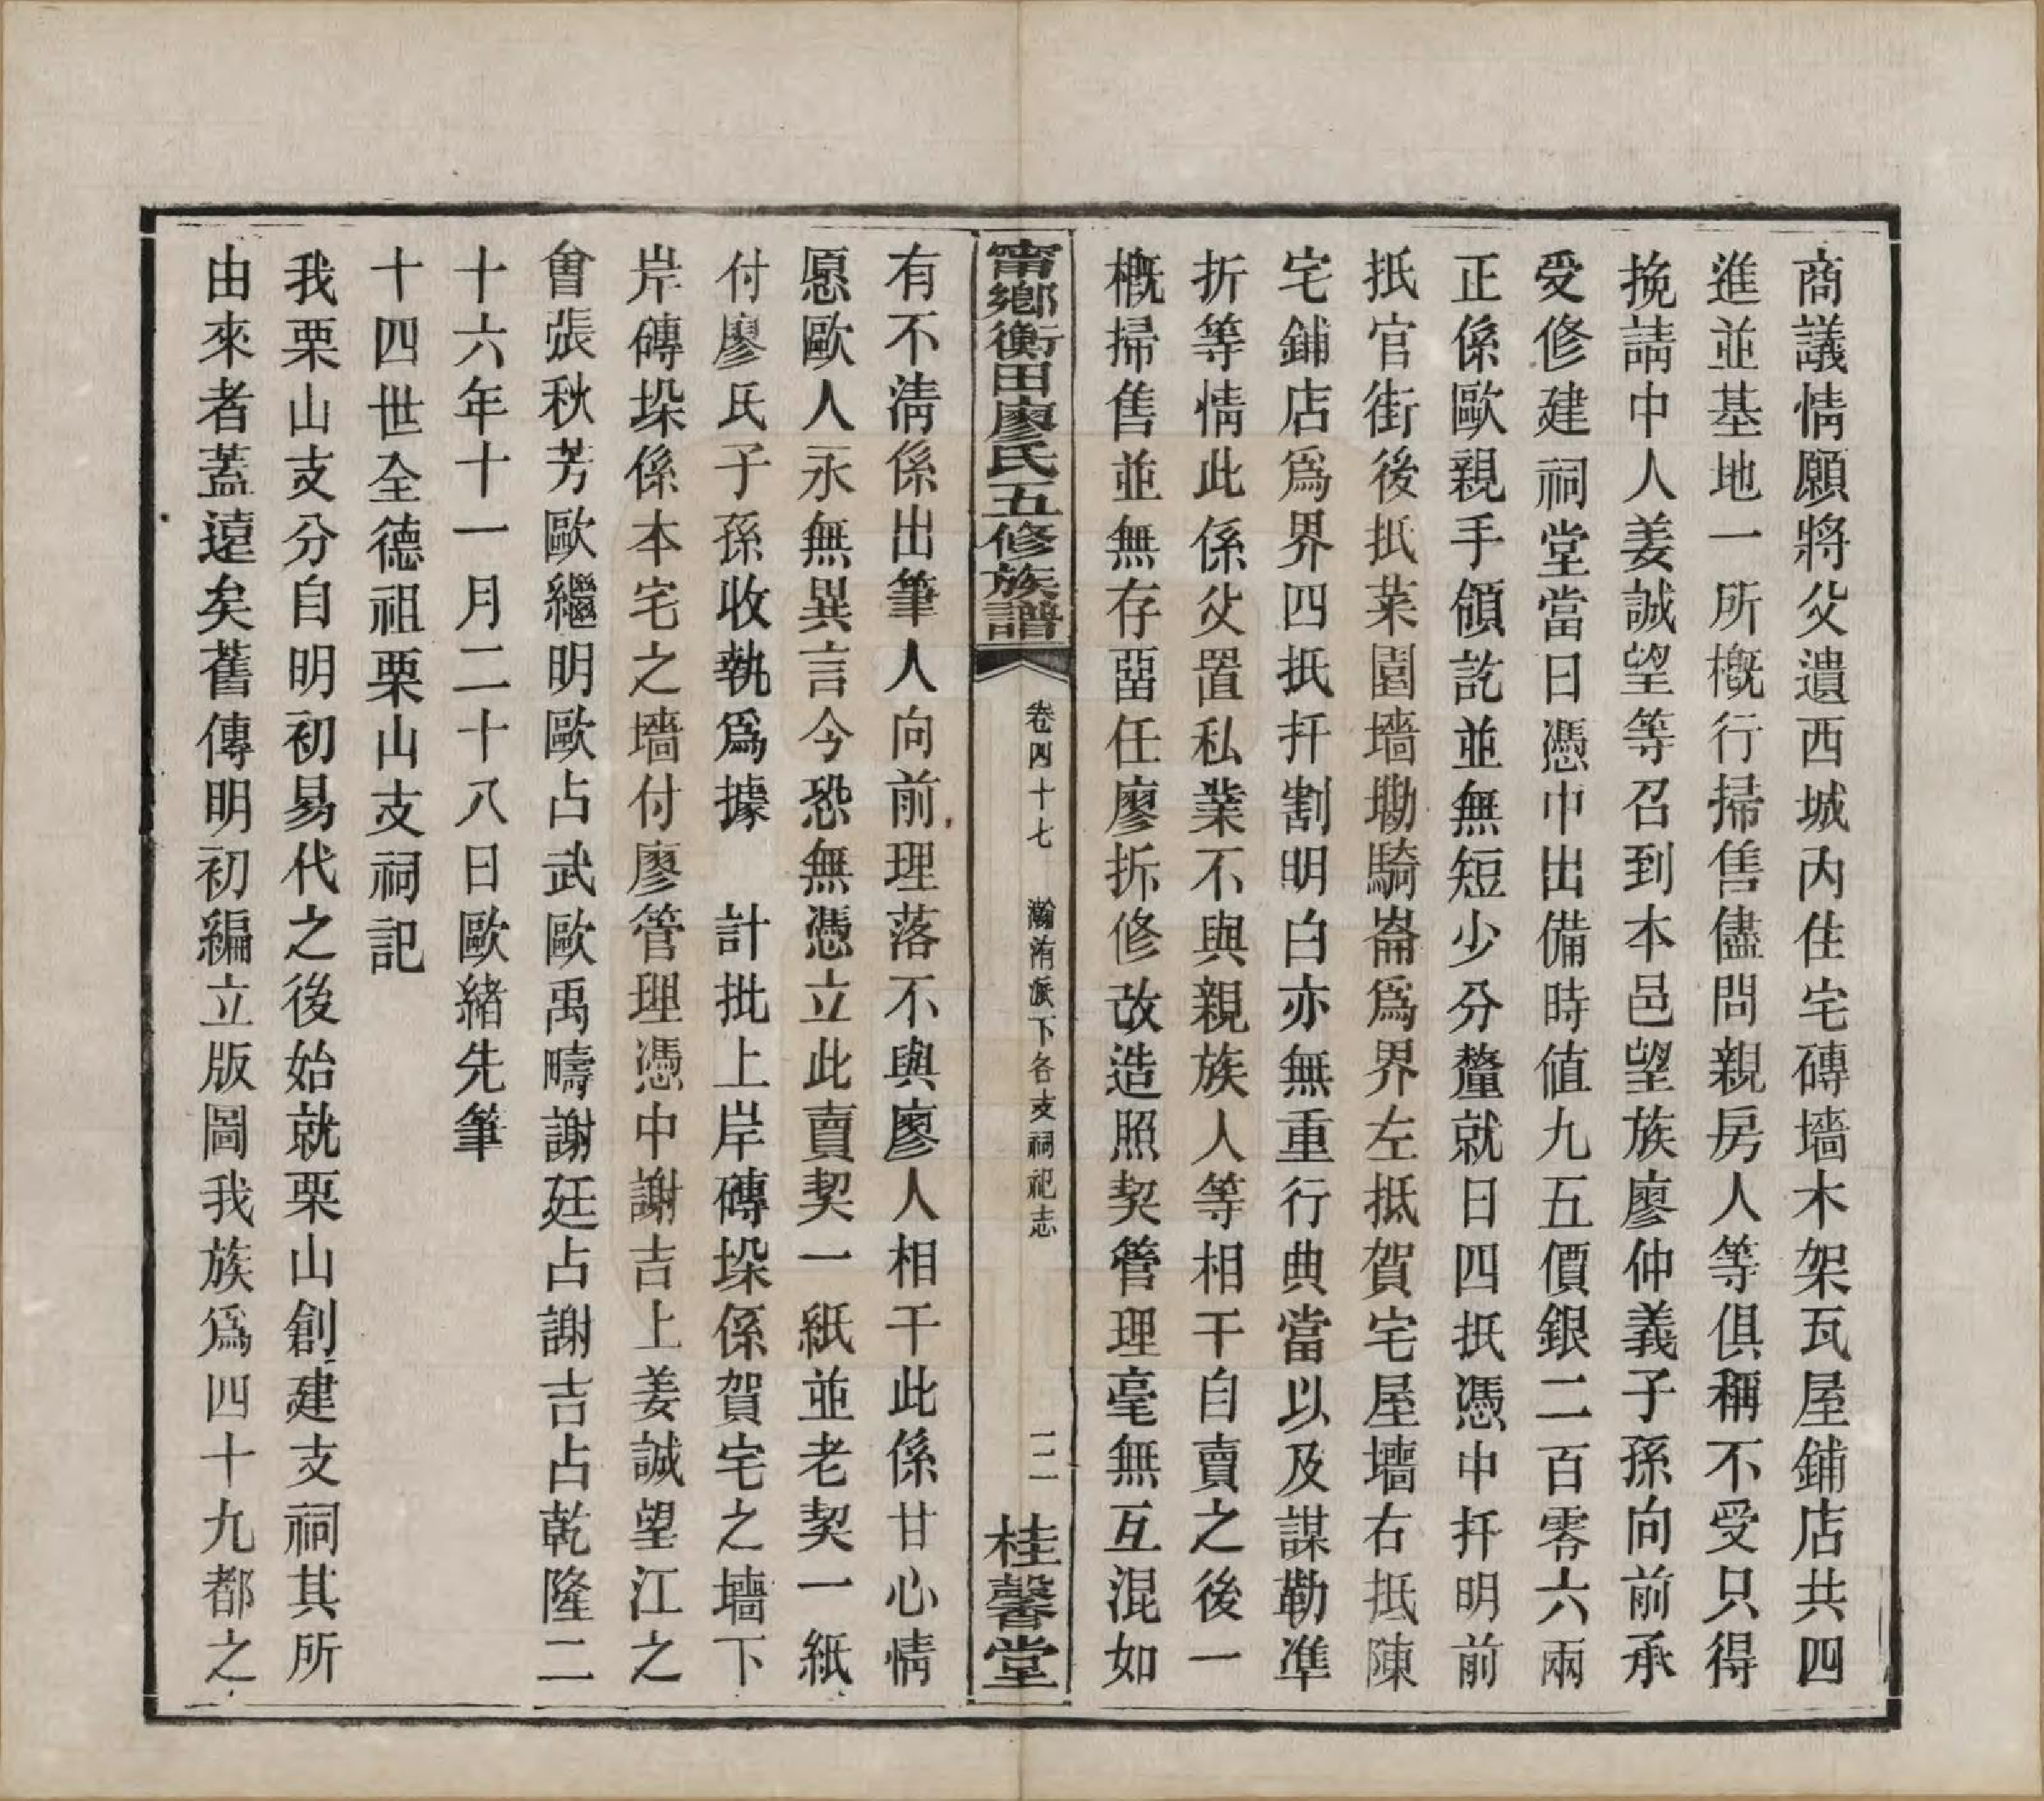 商議情願將父遺西城內住宅磚墻木架瓦屋鋪店共四
進並基地一所概行掃售儘問親房人等俱稱不受只得
挽請中人姜誠望等召到本邑望族廖仲義子孫向前承
受修建祠堂當日憑中出備時值九五價銀二百零六兩
正係歐親手領訖並無短少分釐就日四抵憑中扞明前
抵官街後抵菜園墻墈騎崙爲界左抵賀宅屋墻右抵陳
宅鋪店爲界四抵扞割明白亦無重行典當以及謀勒準
折等情此係父置私業不與親族人等相干自賣之後一
概掃售並無存畱任廖拆修改造照契管理毫無互混如
甯鄉衡田廖氏五修族譜
卷四十七　瀚洧派下各支祠祀志
二
桂馨堂
有不淸係出筆人向前理落不與廖人相干此係甘心情
愿歐人永無異言今恐無憑立此賣契一紙並老契一紙
付廖氏子孫收執爲據　計批上岸磚垜係賀宅之墻下
岸磚垜係本宅之墻付廖管理憑中謝吉上姜誠望江之
會張秋芳歐繼明歐占武歐禹疇謝廷占謝吉占乾隆二
十六年十一月二十八日歐緒先筆
十四世全德祖栗山支祠記
我栗山支分自明初易代之後始就栗山創建支祠其所
由來者蓋遠矣舊傳明初編立版圖我族爲四十九都之